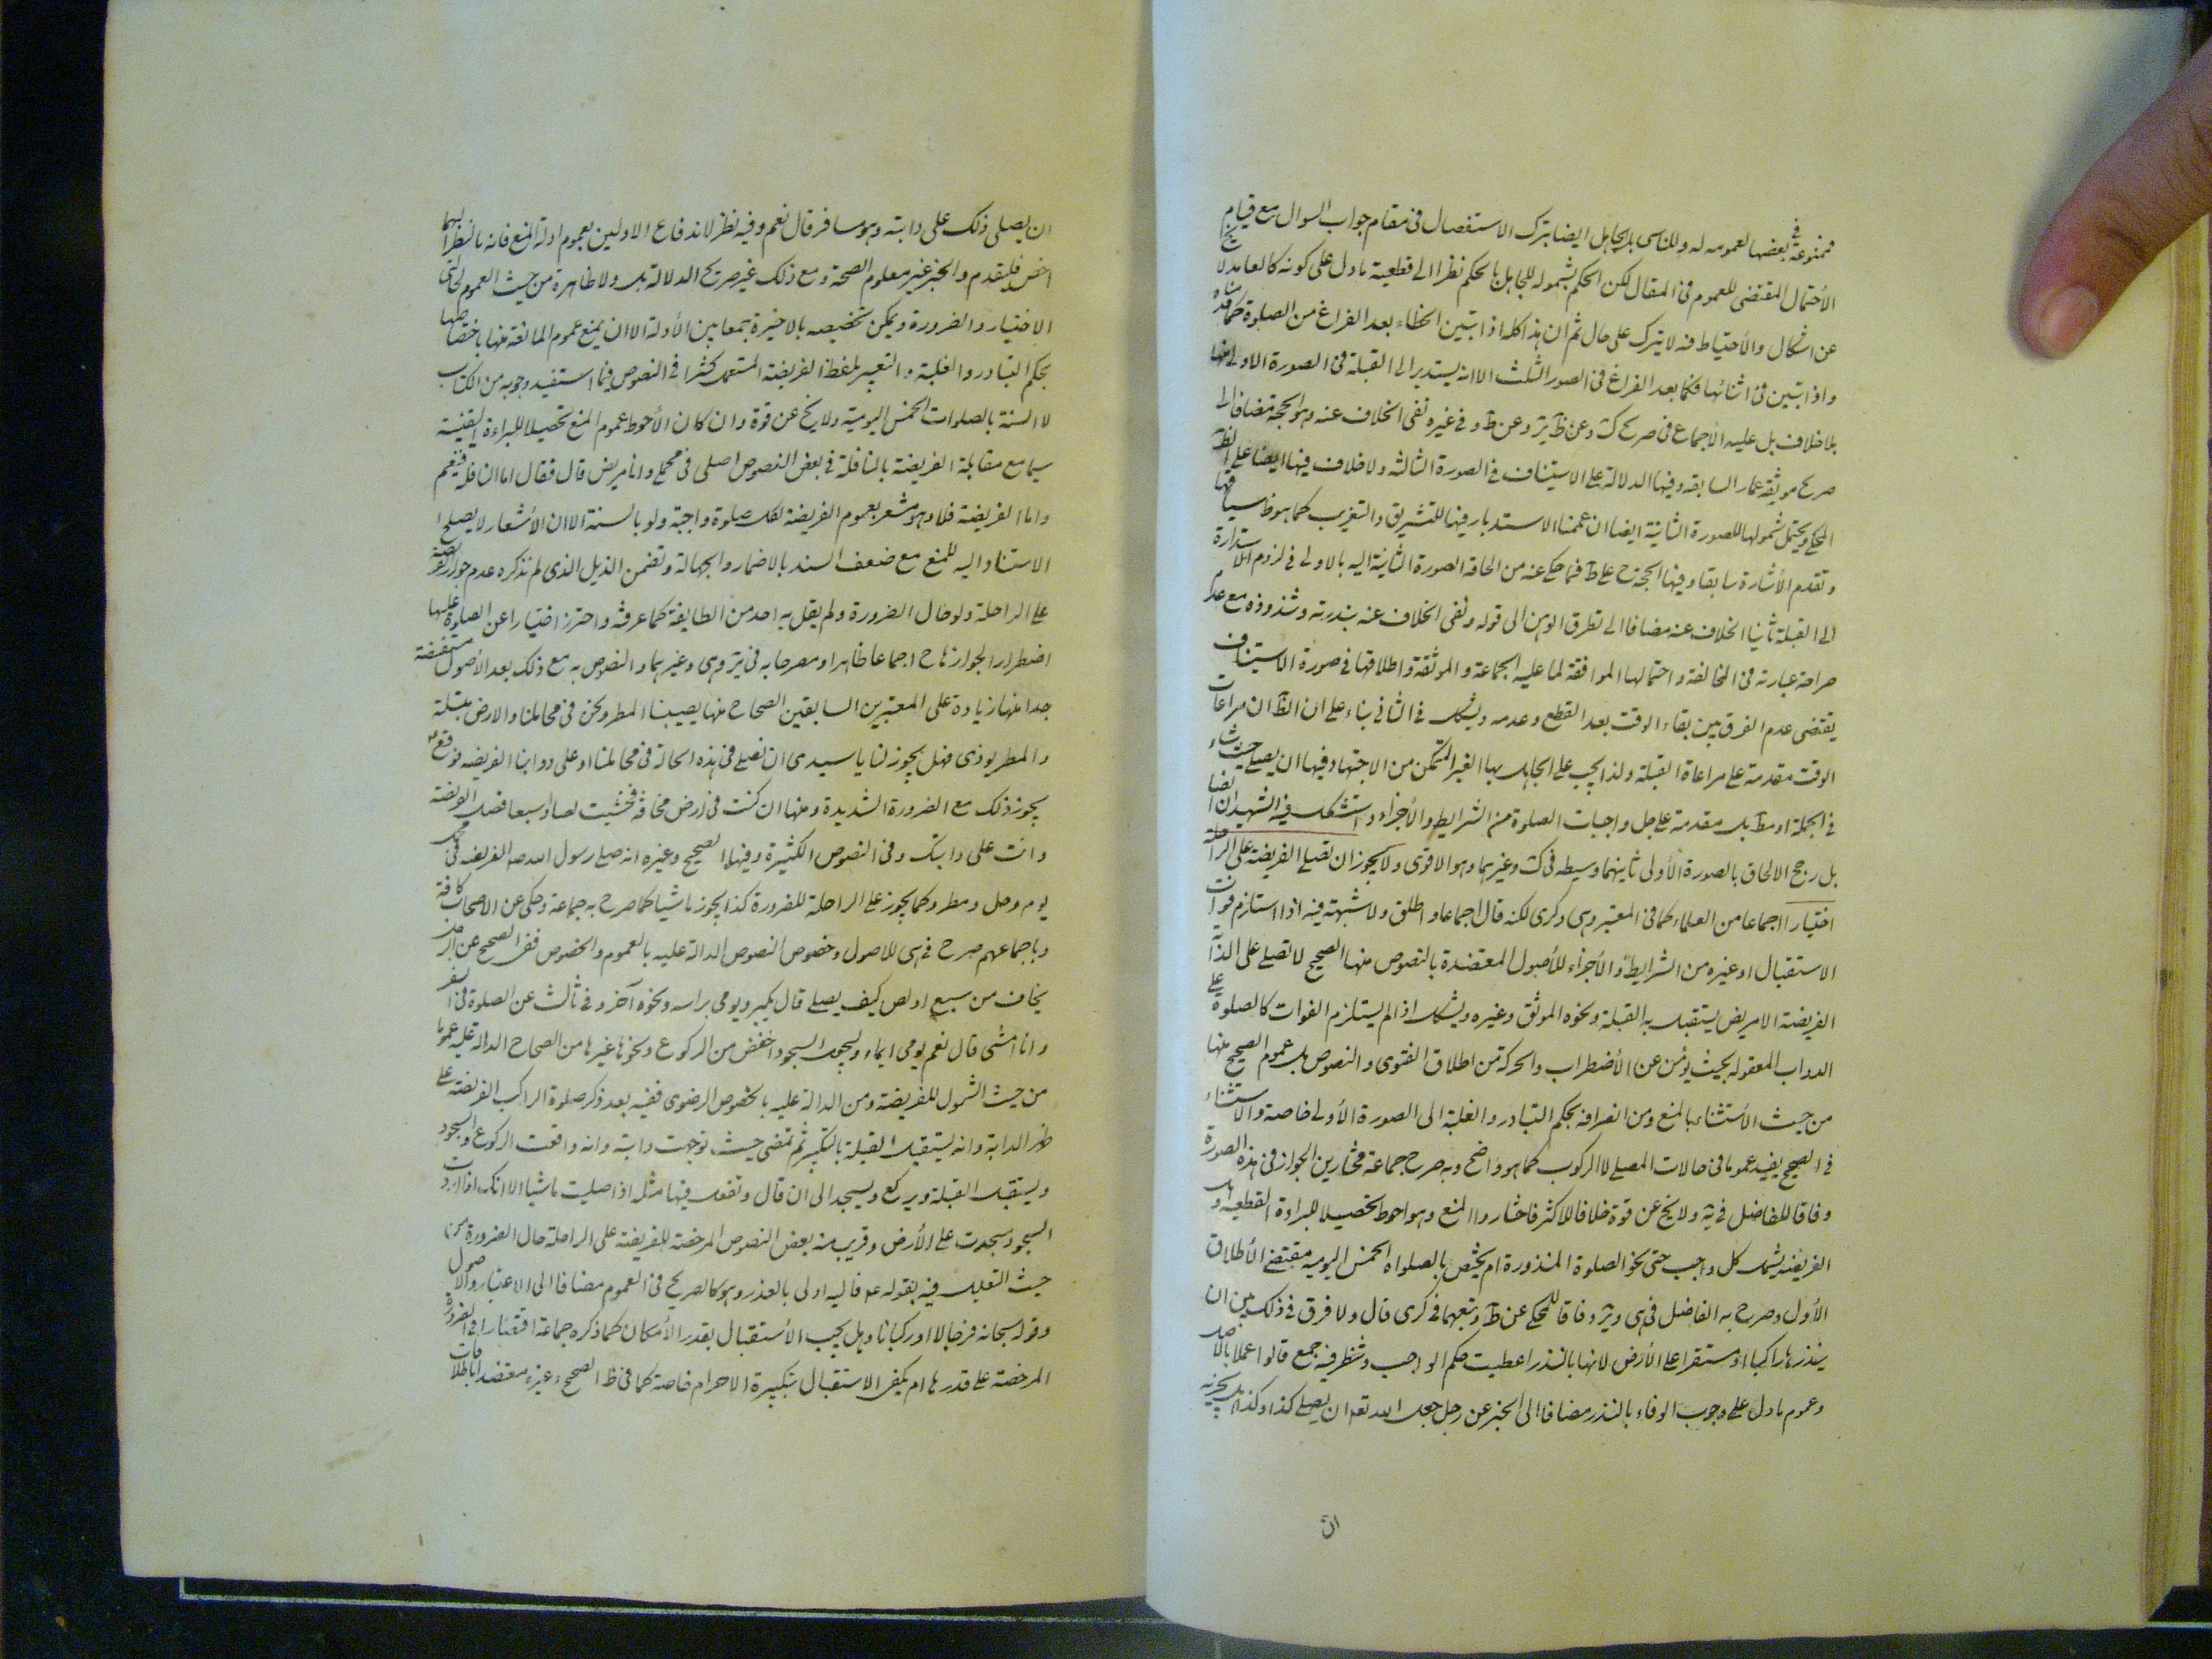 فممنوعة في بعضها لعمومه له وللناسي بل الجاهل ايضا بترك الاستفصال في مقام جواب السوال مع قيام
الأحتمال المقتضى للعموم في المقال لكن الحكم بشموله للجاهل بالحكم نظرا الى قطعية ما دل على كونه كالعامد لا يخ
عن اشكال والأحتياط فيه لا يترك على حال ثم ان هذا كله اذا تبين الخطاء بعد الفراغ من الصلوة كما قدمناه
واذا تبين في اثنائها فكما بعد الفراغ في الصور الثلث الا انه يستدير الى القبلة في الصورة الاولى منها
بلا خلاف بل عليه الأجماع في صريح ك وعن ظ ير وعن ط وفي غيره نفى الخلاف عنه وهو الحجة مضافا الى
صريح موثقة عمار السابقة وفيها الدلالة على الاستيناف في الصورة الثالثة ولا خلاف فيها ايضا على الظ
المحكي ويحتمل شمولها للصورة الثانية ايضا ان عممنا الاستدبار فيها للتشريق والتغريب كما هو ظ سياقها
وتقدم الأشارة سابقا وفيها الحجة ح على ط فيما حكي عنه من الحاقه الصورة الثانية اليه بالاولى في لزوم الاستدارة
الى القبلة نافيا الخلاف عنه مضافا الى تطرق الوهن الى قوله ونفى الخلاف عنه بندرته وشذوذه مع عدم
صراحة عبارته في المخالفة واحتمالها الموافقة لما عليه الجماعة والموثقة واطلاقها في صورة الاستيناف
يقتضى عدم الفرق بين بقاء الوقت بعد القطع وعدمه ويشكل في الثاني بناء على ان الظ ان مراعات
الوقت مقدمة على مراعاة القبلة ولذا يجب على الجاهل بها الغير المتمكن من الاجتهاد فيها ان يصلي حيث شاء
في الجملة او مط بل مقدمة على جل واجبات الصلوة من الشرايط والأجزاء واستشكل فيه الشهيدان ايضا
بل رجح الالحاق بالصورة الأولى ثانيهما وسبطه في ك وغيرهما وهو الاقوى ولا يجوز ان تصلي الفريضة على الراحلة
اختيارا اجماعا من العلماء كما في المعتبر وهي وكرى لكنه قال اجماعا واطلق ولا شبهة فيه اذا استلزم فوات
الاستقبال او غيره من الشرايط والأجزاء للأصول المعتضدة بالنصوص منها الصحيح لا تصلي على الدآ
الفريضة الا مريض يستقبل به القبلة ونحوه الموثق وغيره ويشكل اذا لم يستلزم الفوات كالصلوة على
الدواب المعقولة بحيث يؤمن عن الأضطراب والحركة من اطلاق الفتوى والنصوص بل عموم الصحيح منها
من حيث الأستثناء بالمنع ومن انصرافه بحكم التبادر والغلبة الى الصورة الأولى خاصة والاستثناء
في الصحيح يفيد عموما في حالات المصلي لا الركوب كما هو واضح وبه صرح جماعة مختارين الجواز في هذه الصورة
وفاقا للفاضل في ية ولا يخ عن قوة خلافا للاكثر فاختاروا المنع وهو احوط تحصيلا للبراءة القطعية وهل
الفريضة يشمل كل واجب حتى نحو الصلوة المنذورة ام يختص بالصلواة الخمس اليومية مقتضى الأطلاق
الأول وصرح به الفاضل في هى وير وفاقا للمحكي عن ط وتبعهما في كرى قال ولا فرق في ذلك بين ان
ينذرها راكبا او مستقرا على الأرض لانها بالنذر اعطيت حكم الواجب وتنظر فيه جمع قالوا عملا بالاصل
وعموم ما دل على وجوب الوفاء بالنذر مضافا الى الخبر عن رجل جعل الله تعه ان يصلي كذا وكذا هل يجزيه
ان
ان يصلى ذلك على دابته وهو مسافر قال نعم وفيه نظر لاندفاع الاولين بعموم ادلة المنع فانه بالنظر اليهما
اخص فليقدم والخبر غير معلوم الصحة ومع ذلك غير صريح الدلالة بل ولا ظاهره من حيث العموم لحالتي
الاختيار والضرورة ويمكن تخصيصه بالاخيرة جمعا بين الأدلة الا ان يمنع عموم المانعة منها باختصاصها
بحكم التبادر والغلبة والتعبير بلفظ الفريضة المستعمل كثيرا في النصوص فيما استفيد وجوبه من الكتاب
لا السنة بالصلوات الخمس اليومية ولا يخ عن قوة وان كان الأحوط عموم المنع تحصيلا للبراءة اليقينية
سيما مع مقابلة الفريضة بالنافلة في بعض النصوص اصلى في محملي وانا مريض قال فقال اما النافلة فنعم
واما الفريضة فلا وهو مشعر بعموم الفريضة لكل صلوة واجبة ولو بالسنة الا ان الأشعار لا يصلح
الاستناد اليه للمنع مع ضعف السند بالاضمار والجهالة وتضمن الذيل الذي لم نذكره عدم جواز الفريضة
على الراحلة ولو حال الضرورة ولم يقل به احد من الطايفة كما عرفته واحترز اختيارا عن الصلوة عليها
اضطرارا لجوازها ح اجماعا ظاهرا ومصرحا به في ير وهى وغيرهما والنصوص به مع ذلك بعد الأصول مستفيضة
جدا منها زيادة على المعتبرين السابقين الصحاح منها يصيبنا المطر ونحن في محاملنا والارض مبتلة
والمطر يوذى فهل يجوز لنا يا سيدى ان نصلى في هذه الحالة في محاملنا او على دوابنا الفريضة فوقع ع
يجوز ذلك مع الضرورة الشديدة ومنها ان كنت في ارض مخافة فخشيت لصا او سبعا فصل الفريضة
وانت على دابتك وفي النصوص الكثيرة وفيها الصحيح وغيره انه صلى رسول الله ص الفريضة في محمل
يوم وحل ومطر وكما يجوز على الراحلة للضرورة كذا يجوز ماشيا كما صرح به جماعة وحكى عن الاصحاب كافة
وباجماعهم صرح في هى للاصول وخصوص النصوص الدالة عليه بالعموم والخصوص ففي الصحيح عن الرجل
يخاف من سبع او لص كيف يصلى قال يكبر ويومى براسه ونحوه آخر وفي ثالث عن الصلوة في السفر
وانا امشى قال نعم يومى ايماء وليجعل السجود اخفض من الركوع ونحوها غيرها من الصحاح الدالة عليه عموما
من حيث الشمول للفريضة ومن الدالة عليه بالخصوص الرضوى ففيه بعد ذكر صلوة الراكب الفريضة على
ظهر الدابة وانه يستقبل القبلة بالتكبير ثم تمضى حيث توجهت دابته وانه واقعت الركوع والسجود
ويستقبل القبلة ويركع ويسجد الى ان قال وتفعل فيها مثله اذا صليت ماشيا الا انك اذا اردت
السجود سجدت على الأرض وقريب منه بعض النصوص المرخصة للفريضة على الراحلة حال الضرورة من
حيث التعليل فيه بقوله ع فاليه اولى بالعذر وهو كالصريح في العموم مضافا الى الاعتبار والاصول
وقوله سبحانه فرجالا او ركبانا وهل يجب الأستقبال بقدر الأمكان كما ذكره جماعة اقتصارا في الضرورة
المرخصة على قدرها ام يكفى الاستقبال بتكبيرة الاحرام خاصة كما في ظ الصحيح وغيره معتضدا باطلاقات